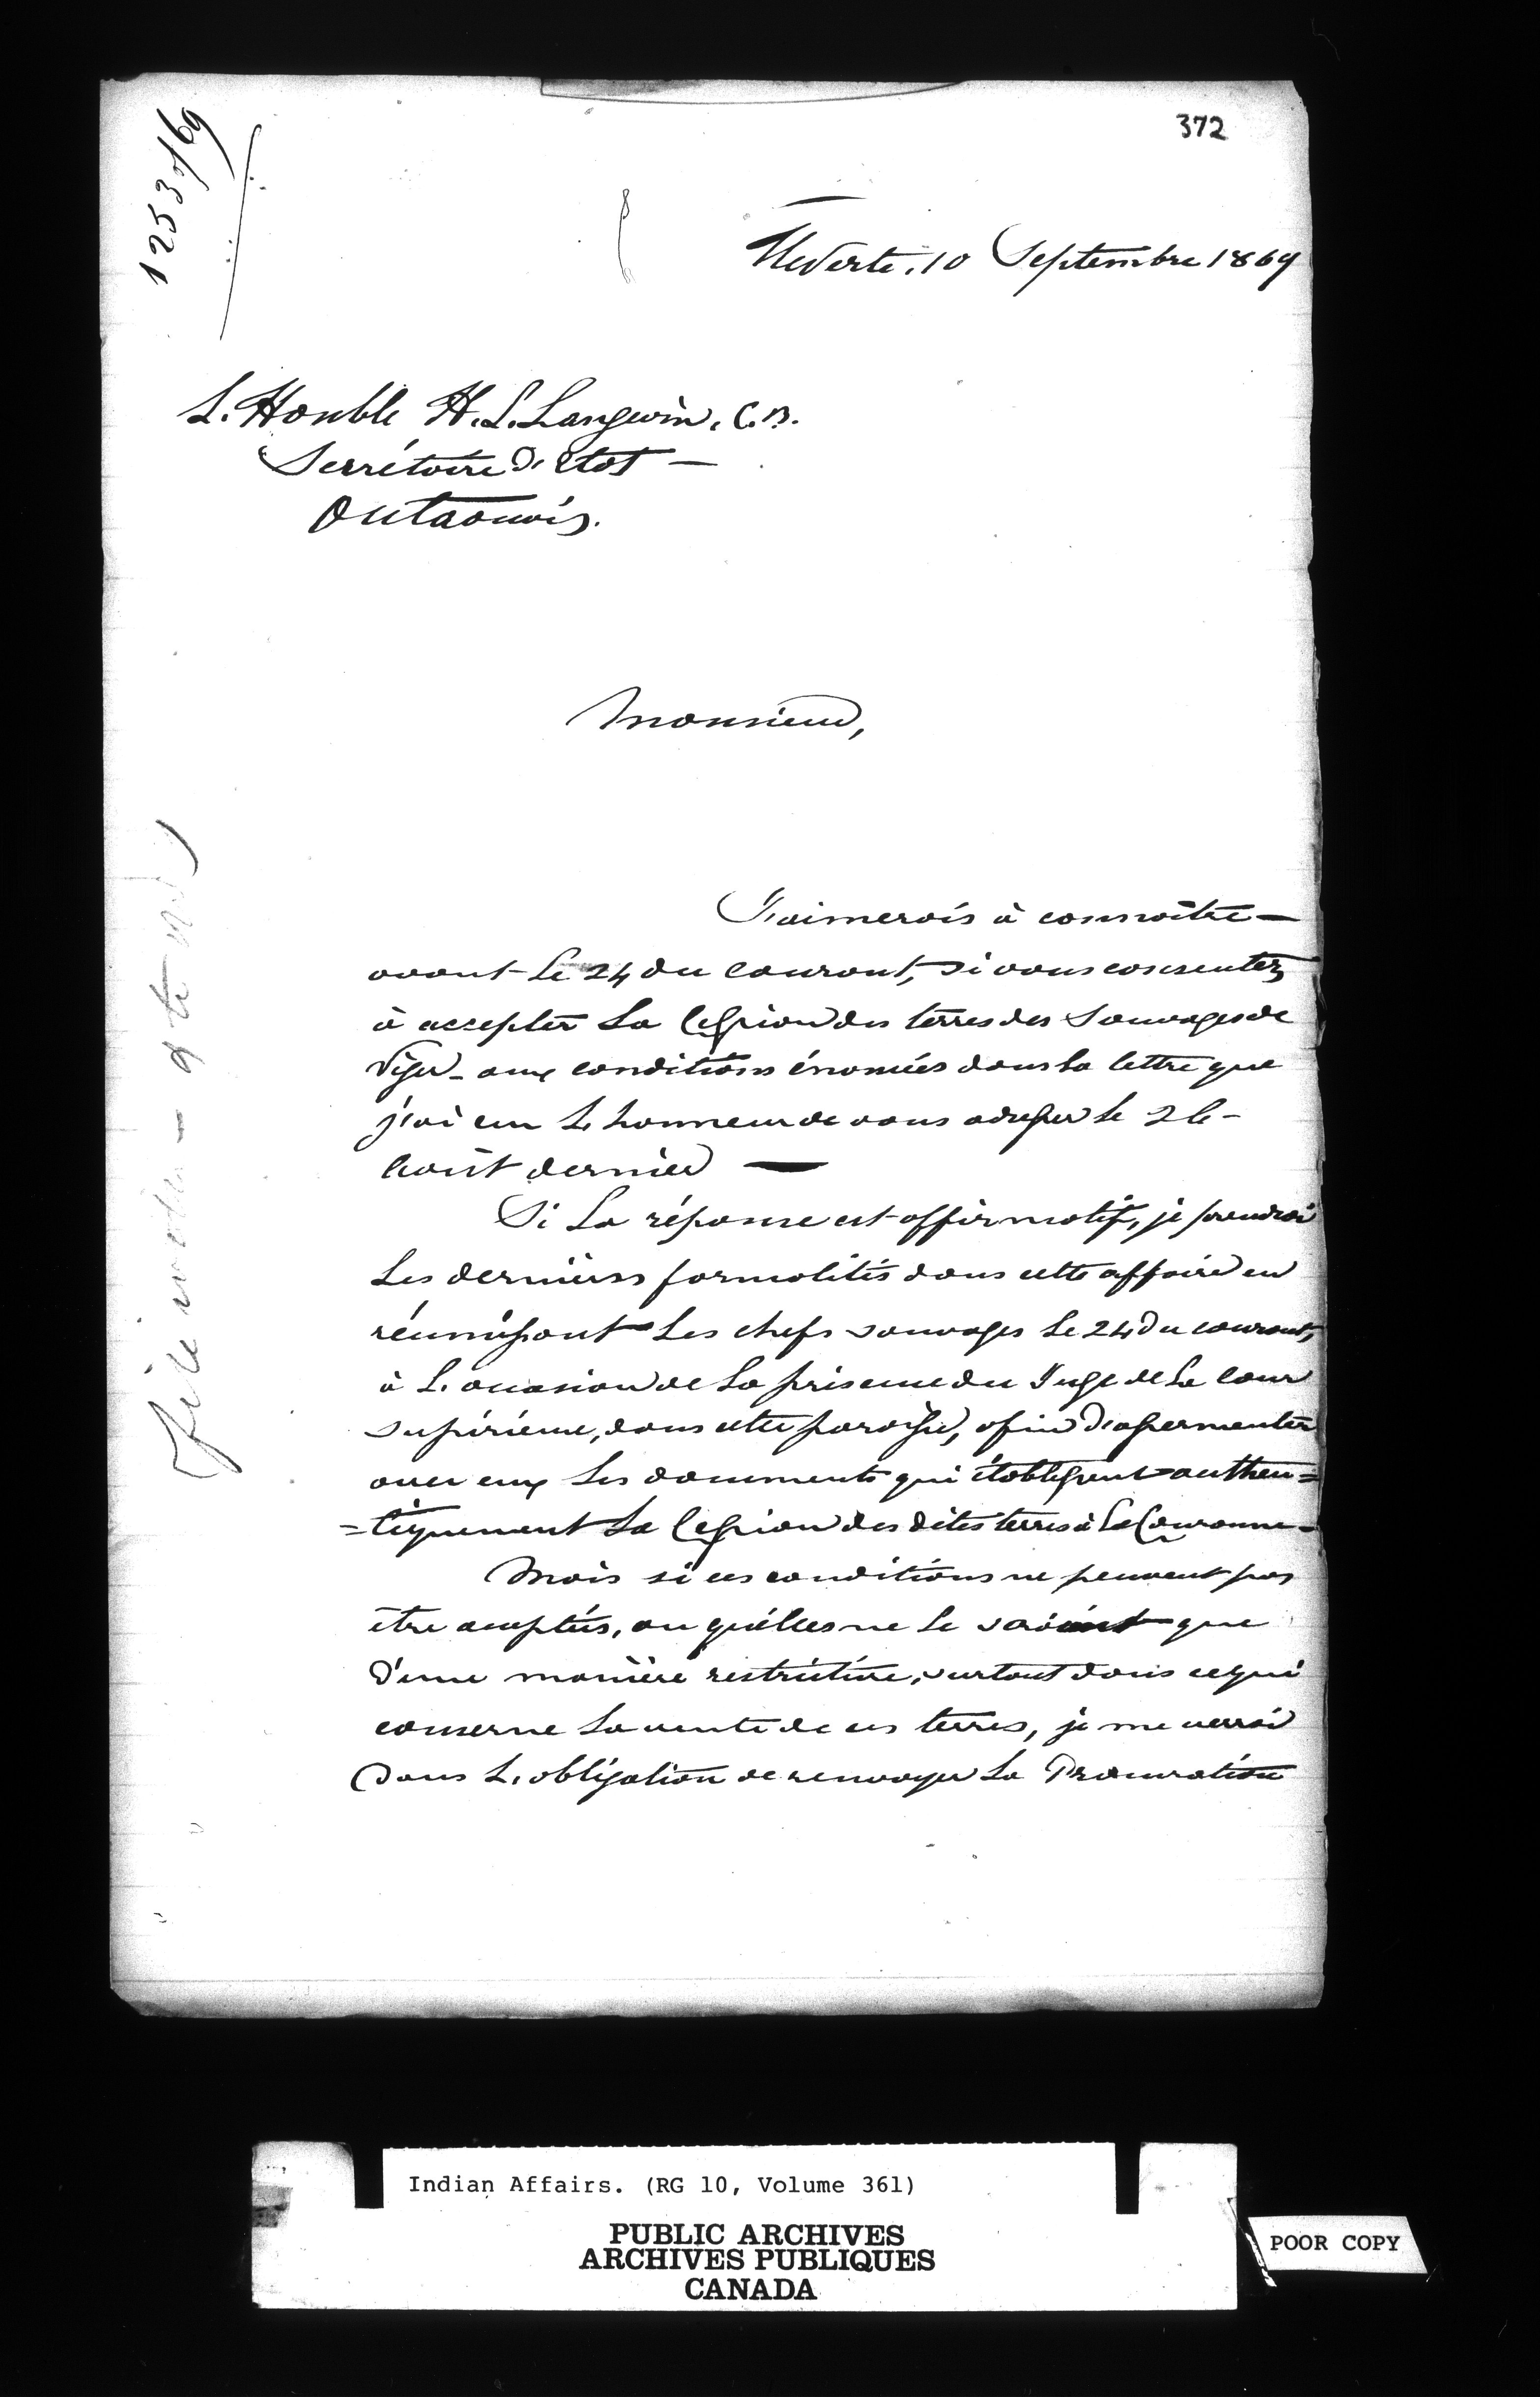 372
1253/69
Ile Verte, 10 Septembre 1869
L'Honble H. L. Langevin, C.B.
Secrétaire d'Etat —
Outaouais.
Monsieur,
J'aimerais à connaître —
avant le 24 du courant, si vous consentez
à accepter la Cession des terres des Sauvages de
Viger - aux conditions énoncées dans la lettre que
j'ai eu l'honneur de vous adresser le 26 -
Août dernier —
Si la réponse est affirmatif, je prendrai
les dernières formalités dans cette affaire en
réunissant les chefs sauvages le 24 du courant,
à l'occasion de la présence du Juge de la Cour
supérieure, dans cette paroisse, afin d'assermenter
avec eux les documents qui établissent authen=
=tiquement la Cession des dites terres à la Couronne -
Mais si ces conditions ne peuvent pas
être acceptées, ou qu'elles ne le soient que
d'une manière restrictive, surtout dans ce qui
conserne la vente de ces terres, je me verrai
dans l'obligation de renvoyer la Procuration
Indian Affairs. (RG 10, Volume 361)
PUBLIC ARCHIVES
ARCHIVES PUBLIQUES
CANADA
POOR COPY